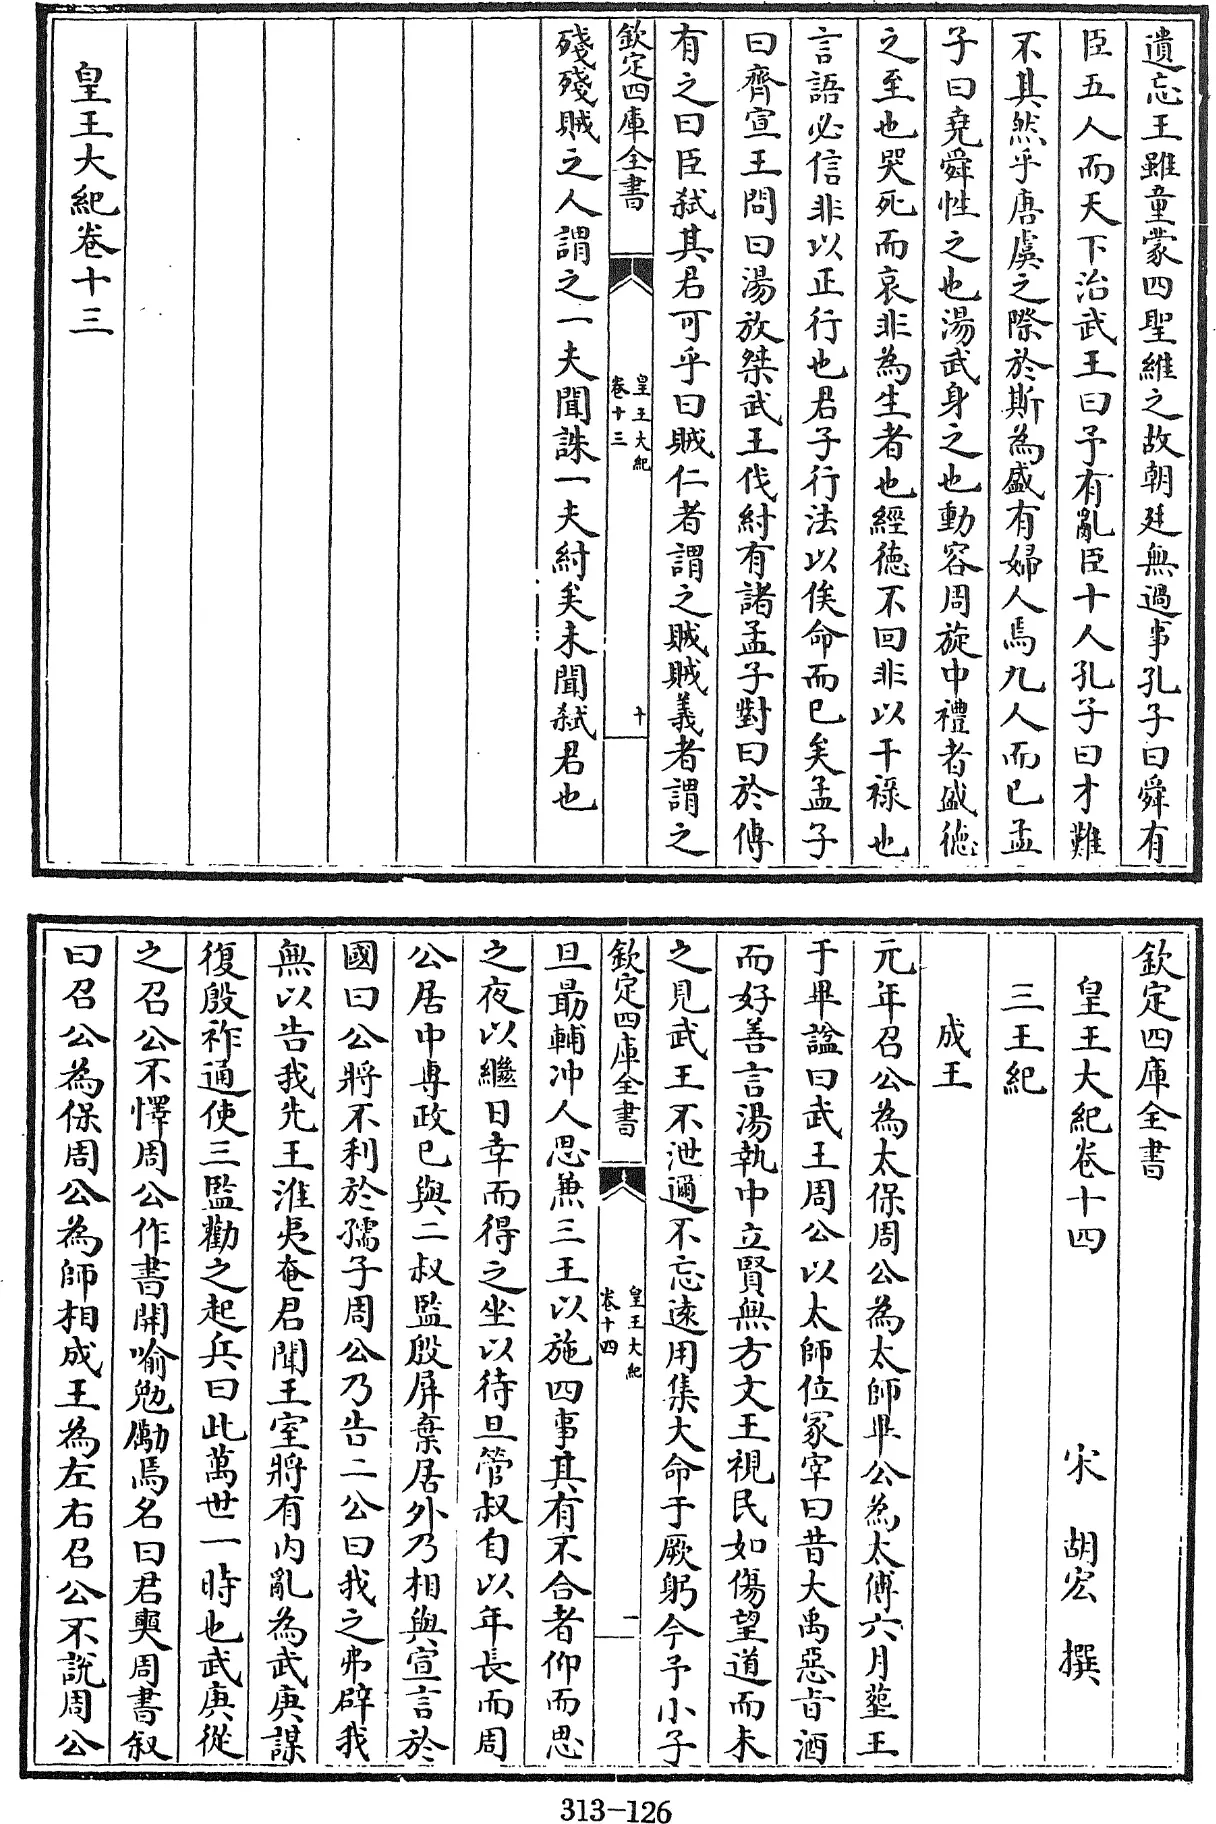 遺忘王雖童蒙四聖維之故朝廷無過事孔子曰舜有
臣五人而天下治武王曰予有亂臣十人孔子曰才難
不其然乎唐虞之際於斯為盛有婦人焉九人而已孟
子曰堯舜性之也湯武身之也動容周旋中禮者盛德
之至也哭死而哀非為生者也經德不回非以干祿也
言語必信非以正行也君子行法以俟命而已矣孟子
曰齊宣王問曰湯放桀武王伐紂有諸孟子對曰於傳
有之曰臣弑其君可乎曰賊仁者謂之賊賊義者謂之
欽定四庫全書
皇王大紀
卷十三
十
殘殘賊之人謂之一夫聞誅一夫紂矣未聞弑君也
皇王大紀卷十三
欽定四庫全書
皇王大紀卷十四 宋 胡宏 撰
三王紀
成王
元年召公為太保周公為太師畢公為太傅六月葬王
于畢諡曰武王周公以太師位冢宰曰昔大禹惡旨酒
而好善言湯執中立賢無方文王視民如傷望道而未
之見武王不泄邇不忘遠用集大命于厥躬今予小子
欽定四庫全書
皇王大紀
卷十四
一
旦勗輔冲人思兼三王以施四事其有不合者仰而思
之夜以繼日幸而得之坐以待旦管叔自以年長而周
公居中專政已與二叔監殷屏棄居外乃相與宣言於
國曰公將不利於孺子周公乃告二公曰我之弗辟我
無以告我先王淮夷奄君聞王室將有内亂為武庚謀
復殷祚通使三監勸之起兵曰此萬世一時也武庚從
之召公不懌周公作書開喻勉勵焉名曰君奭周書叙
曰召公為保周公為師相成王為左右召公不說周公
313-126